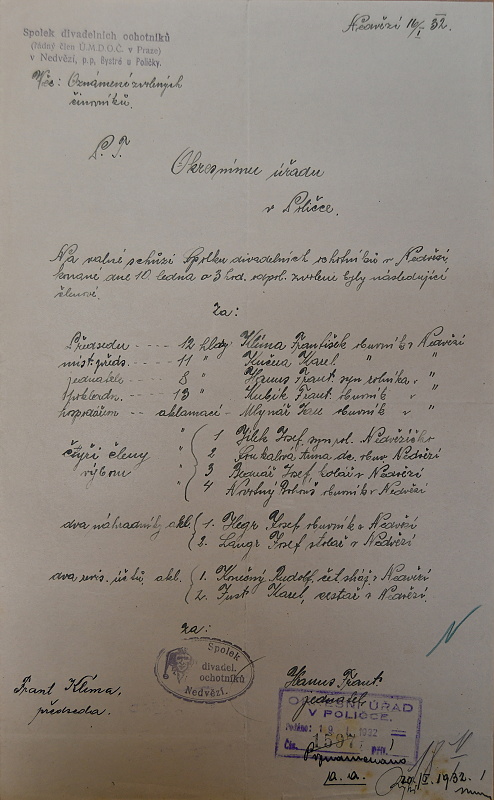 Spolek divadelních ochotníků
(řádný člen Ú.M.D.O.Č. v Praze)
v Nedvězí, p.p. Bystré u Poličky.
Nedvězí 16/I. 32.
Věc: Oznámení zvolených
činovníků.
P. T.
Okresnímu úřadu
v Poličce.
Na valné schůzi Spolku divadelních ochotníků v Nedvězí,
konané dne 10 ledna o 3 hod. odpol. zvoleni byly následující
členové.
Za:
Předsedu ---- 12 hlasy Klíma František obuvník v Nedvězí
míst. před. --- 11 " Kučera Karel " "
jednatele --- 8 " Hanus Frant. syn rolníka v "
pokladn. --- 13 " Kubík Frant. obuvník v "
hospodářem -- aklamací - Mlynář Jan obuvník v "
čtyři členy " 1 Josef syn rol. Nedvězíčko
výboru " 2 Anna dc. obuv. Nedvězí
" 3 Bednář Josef kolář v Nedvězí
" 4 Novotný obuvník v Nedvězí
dva náhradníky akl. 1. Hegr Josef obuvník v Nedvězí
2. Langr Josef stolař v Nedvězí
dva revis. účtů, akl. 1. Konečný Rudolf, v Nedvězí
2. Karel, cestář v Nedvězí.
Za:
Spolek
divadel.
ochotníků
Nedvězí.
Frant Klíma,
předseda.
Hanus Frant.
jednatel
OKRESNÍ ÚŘAD
V POLIČCE.
Došlo: 1932
Čís. 1597 příl.
Poznamenáno
a. a.
20/I. 1932